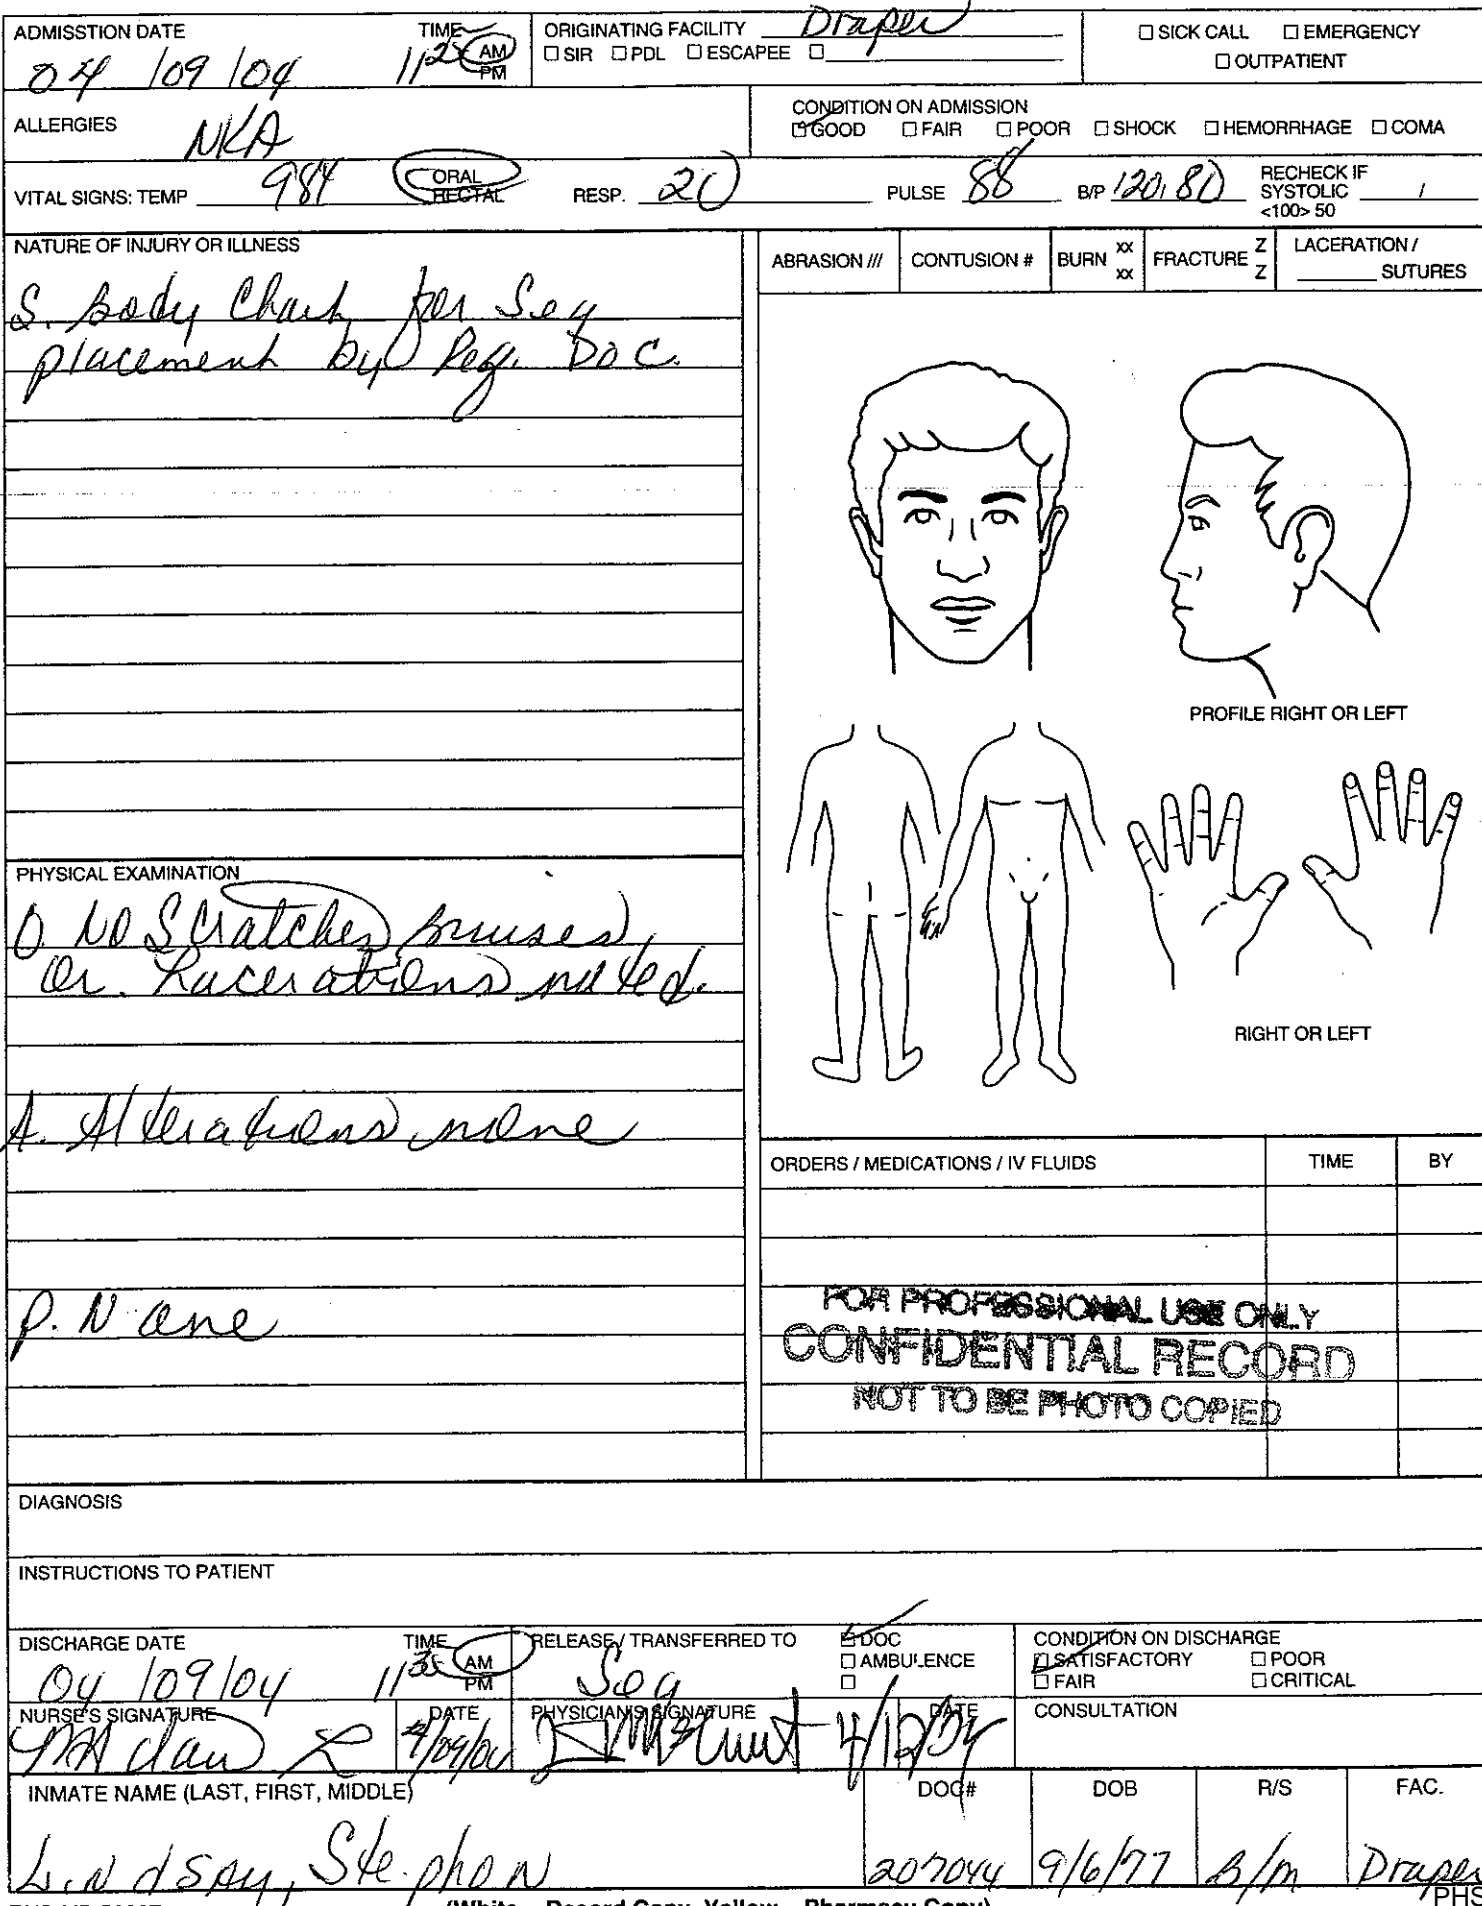 ADMISSTION DATE TIME ORIGINATING FACILITY Draper □ SICK CALL □ EMERGENCY
04 /09 /04 11 25 AM PM □ SIR □ PDL □ ESCAPEE □ □ OUTPATIENT
ALLERGIES NKA CONDITION ON ADMISSION
□ GOOD □ FAIR □ POOR □ SHOCK □ HEMORRHAGE □ COMA
VITAL SIGNS: TEMP 984 ORAL RECTAL RESP. 20 PULSE 88 B/P 120/80 RECHECK IF SYSTOLIC / <100> 50
NATURE OF INJURY OR ILLNESS
S. Body Chart for Seg
placement by Reg. DOC.
ABRASION /// CONTUSION # BURN xx xx FRACTURE Z Z LACERATION / SUTURES
PROFILE RIGHT OR LEFT
RIGHT OR LEFT
PHYSICAL EXAMINATION
O. NO Scratches, bruises,
or Lacerations noted.
A. Alterations none
P. None
ORDERS / MEDICATIONS / IV FLUIDS TIME BY
FOR PROFESSIONAL USE ONLY
CONFIDENTIAL RECORD
NOT TO BE PHOTO COPIED
DIAGNOSIS
INSTRUCTIONS TO PATIENT
DISCHARGE DATE TIME RELEASE / TRANSFERRED TO □ DOC CONDITION ON DISCHARGE
04 /09/04 11 35 AM PM Seg □ AMBULENCE □ SATISFACTORY □ POOR
□ □ FAIR □ CRITICAL
NURSE'S SIGNATURE DATE PHYSICIAN'S SIGNATURE DATE CONSULTATION
4/09/04 4/12/04
INMATE NAME (LAST, FIRST, MIDDLE) DOC# DOB R/S FAC.
Lindsay, Stephon 207044 9/6/77 B/M Draper
PHS
(White – Record Copy, Yellow – Pharmacy Copy)